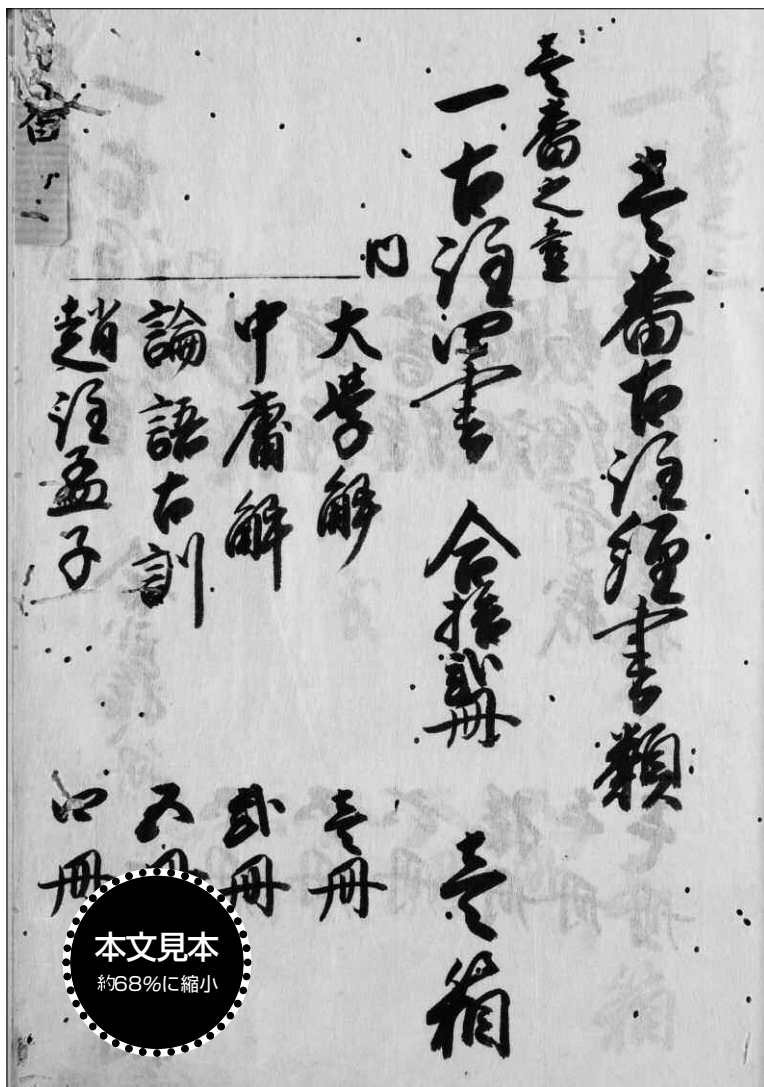 壱番古注経書類
壱番之壱
一古注四書 合拾弐冊 壱箱
内
大学解 壱冊
中庸解 弐冊
論語古訓 五冊
趙注孟子 四冊
本文見本
約68%に縮小